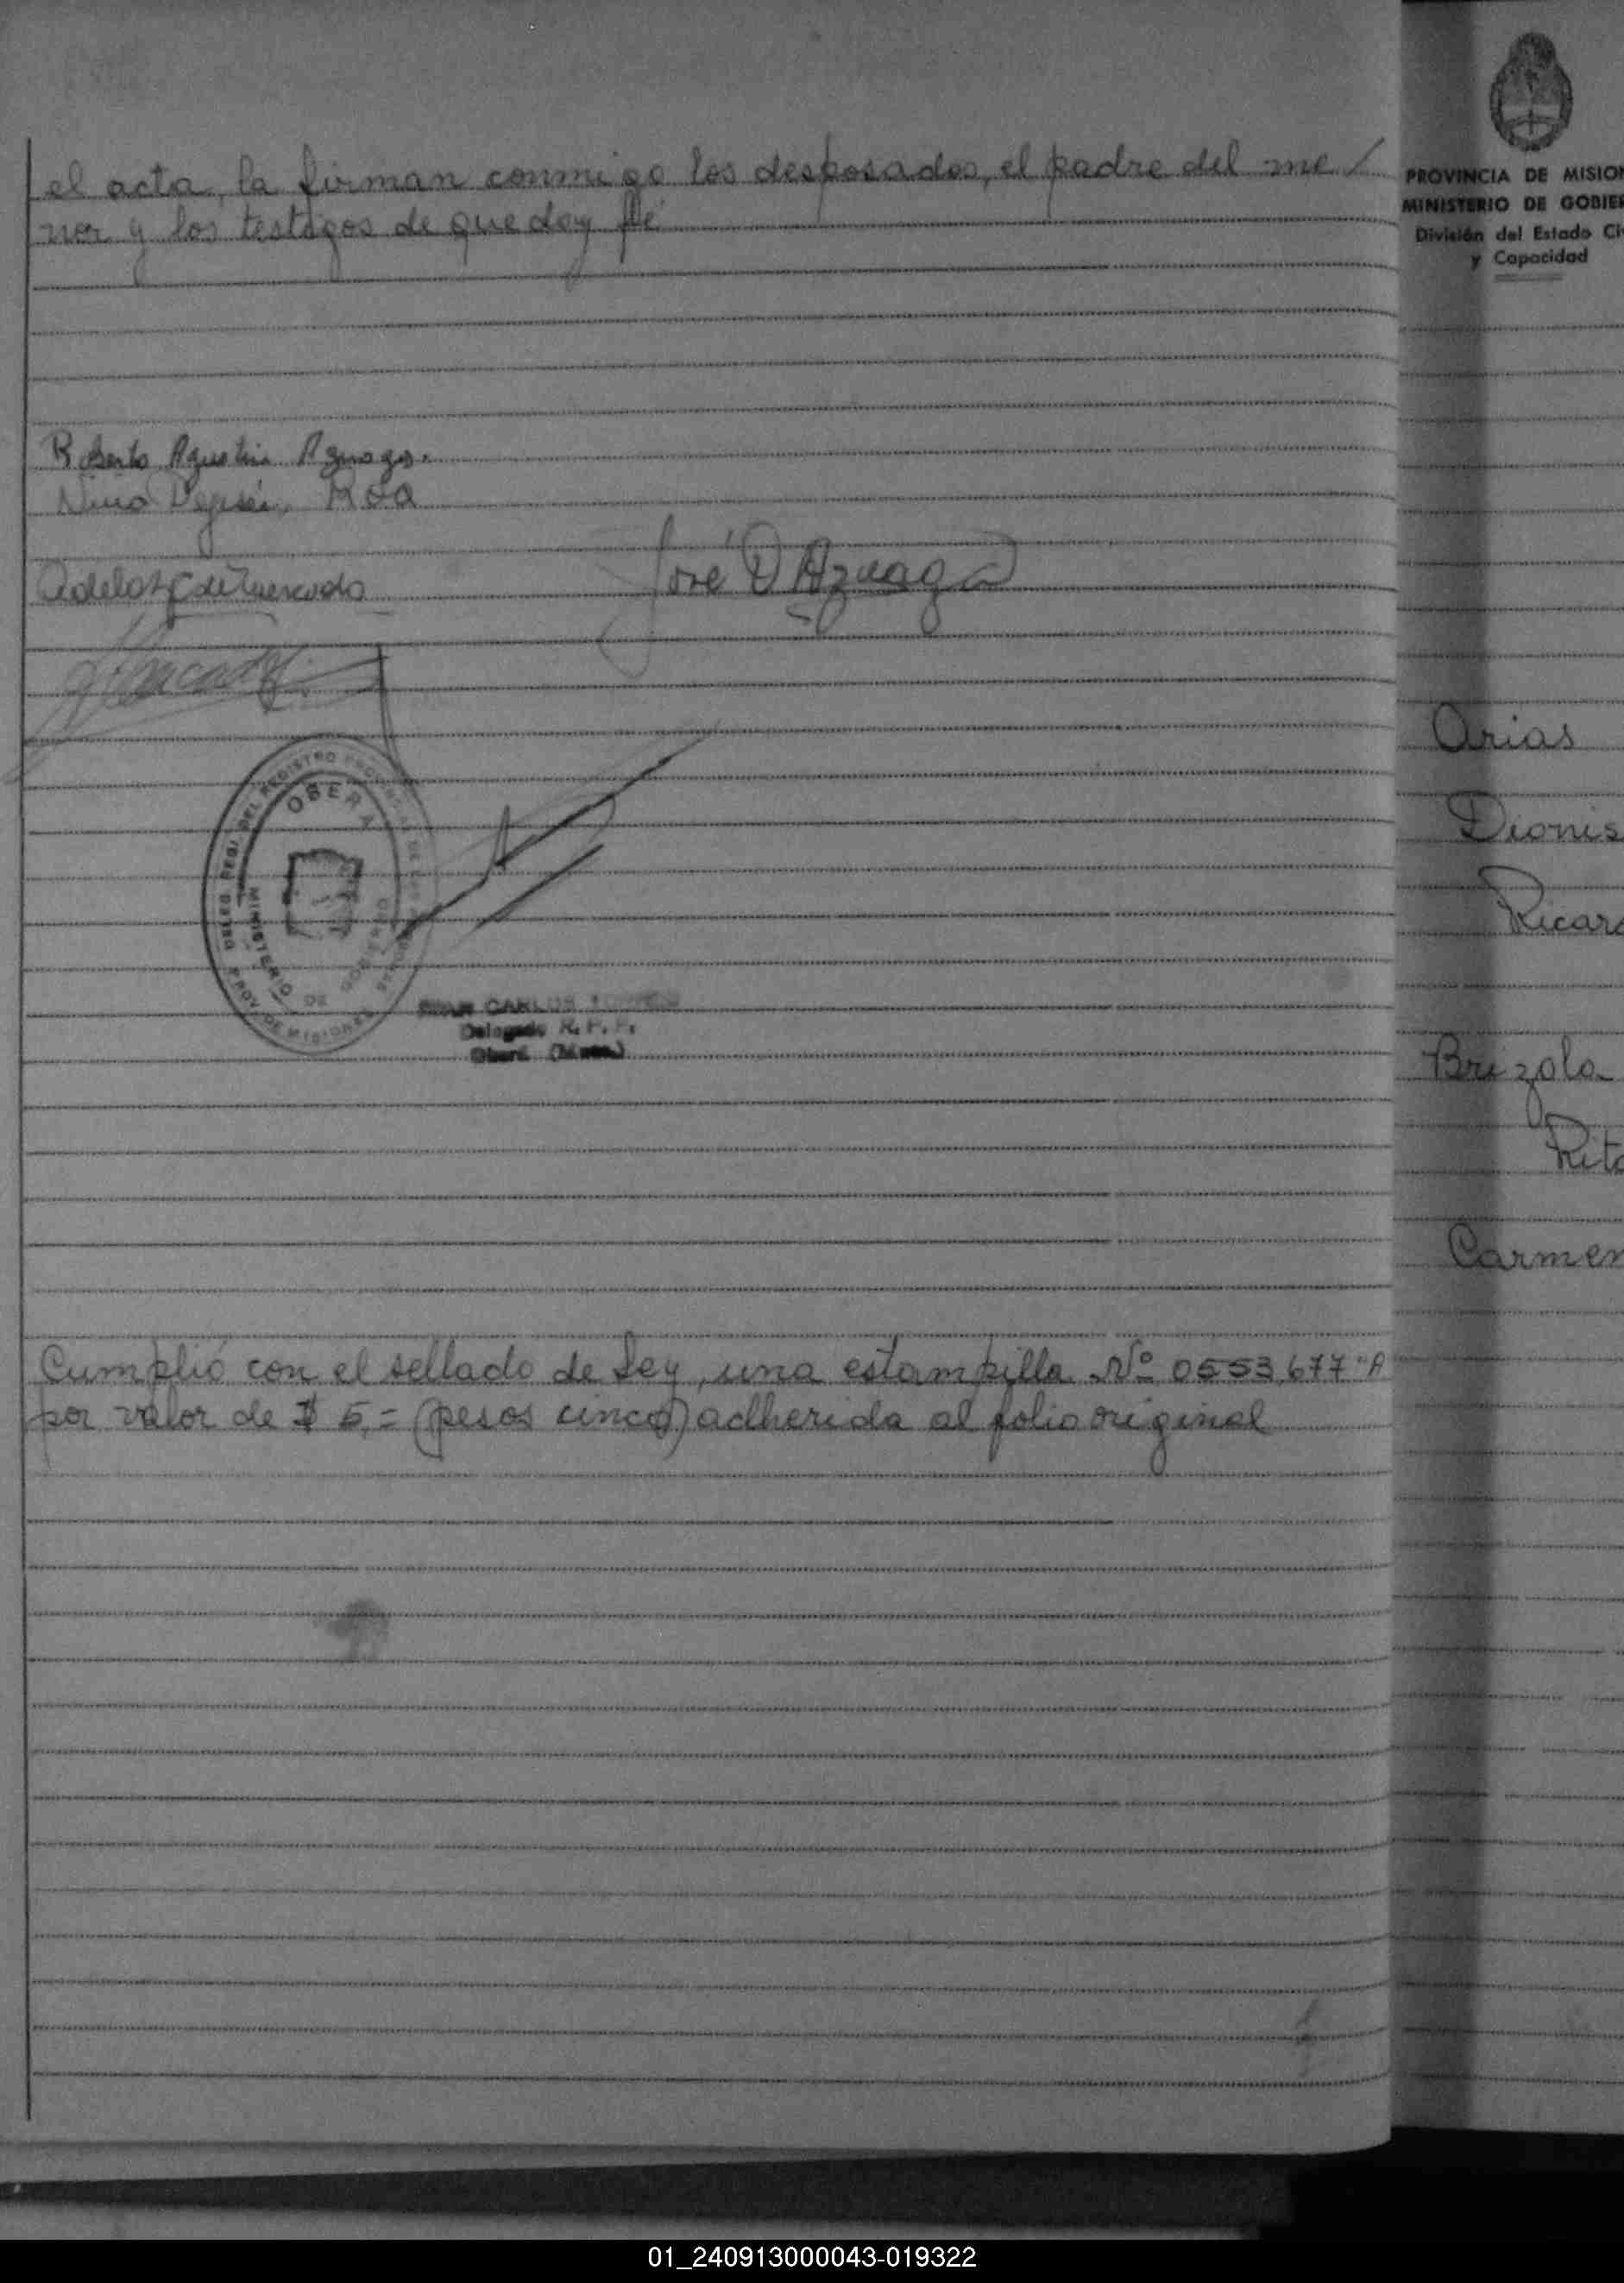 el acta, la firman conmigo los desposados, el padre del me/
nor y los testigos de que doy fé
Roberto Agustin Azuaga.
Roa
José D Azuaga
DELEG. REGI. DEL REGISTRO
OBERA
MINISTERIO DE GOBIERNO
PROV. DE MISIONES
CARLOS
Delegado R. P. P.
Oberá (Mnes.)
Cumplió con el sellado de Ley, una estampilla Nº 0553.677 "A
por valor de $ 5,= (pesos cinco) adherida al folio original
PROVINCIA DE MISION
MINISTERIO DE GOBIER
División del Estado Civ
y Capacidad
Arias
Dionis
Ricard
Brizola
Rita
Carmen
01_240913000043-019322